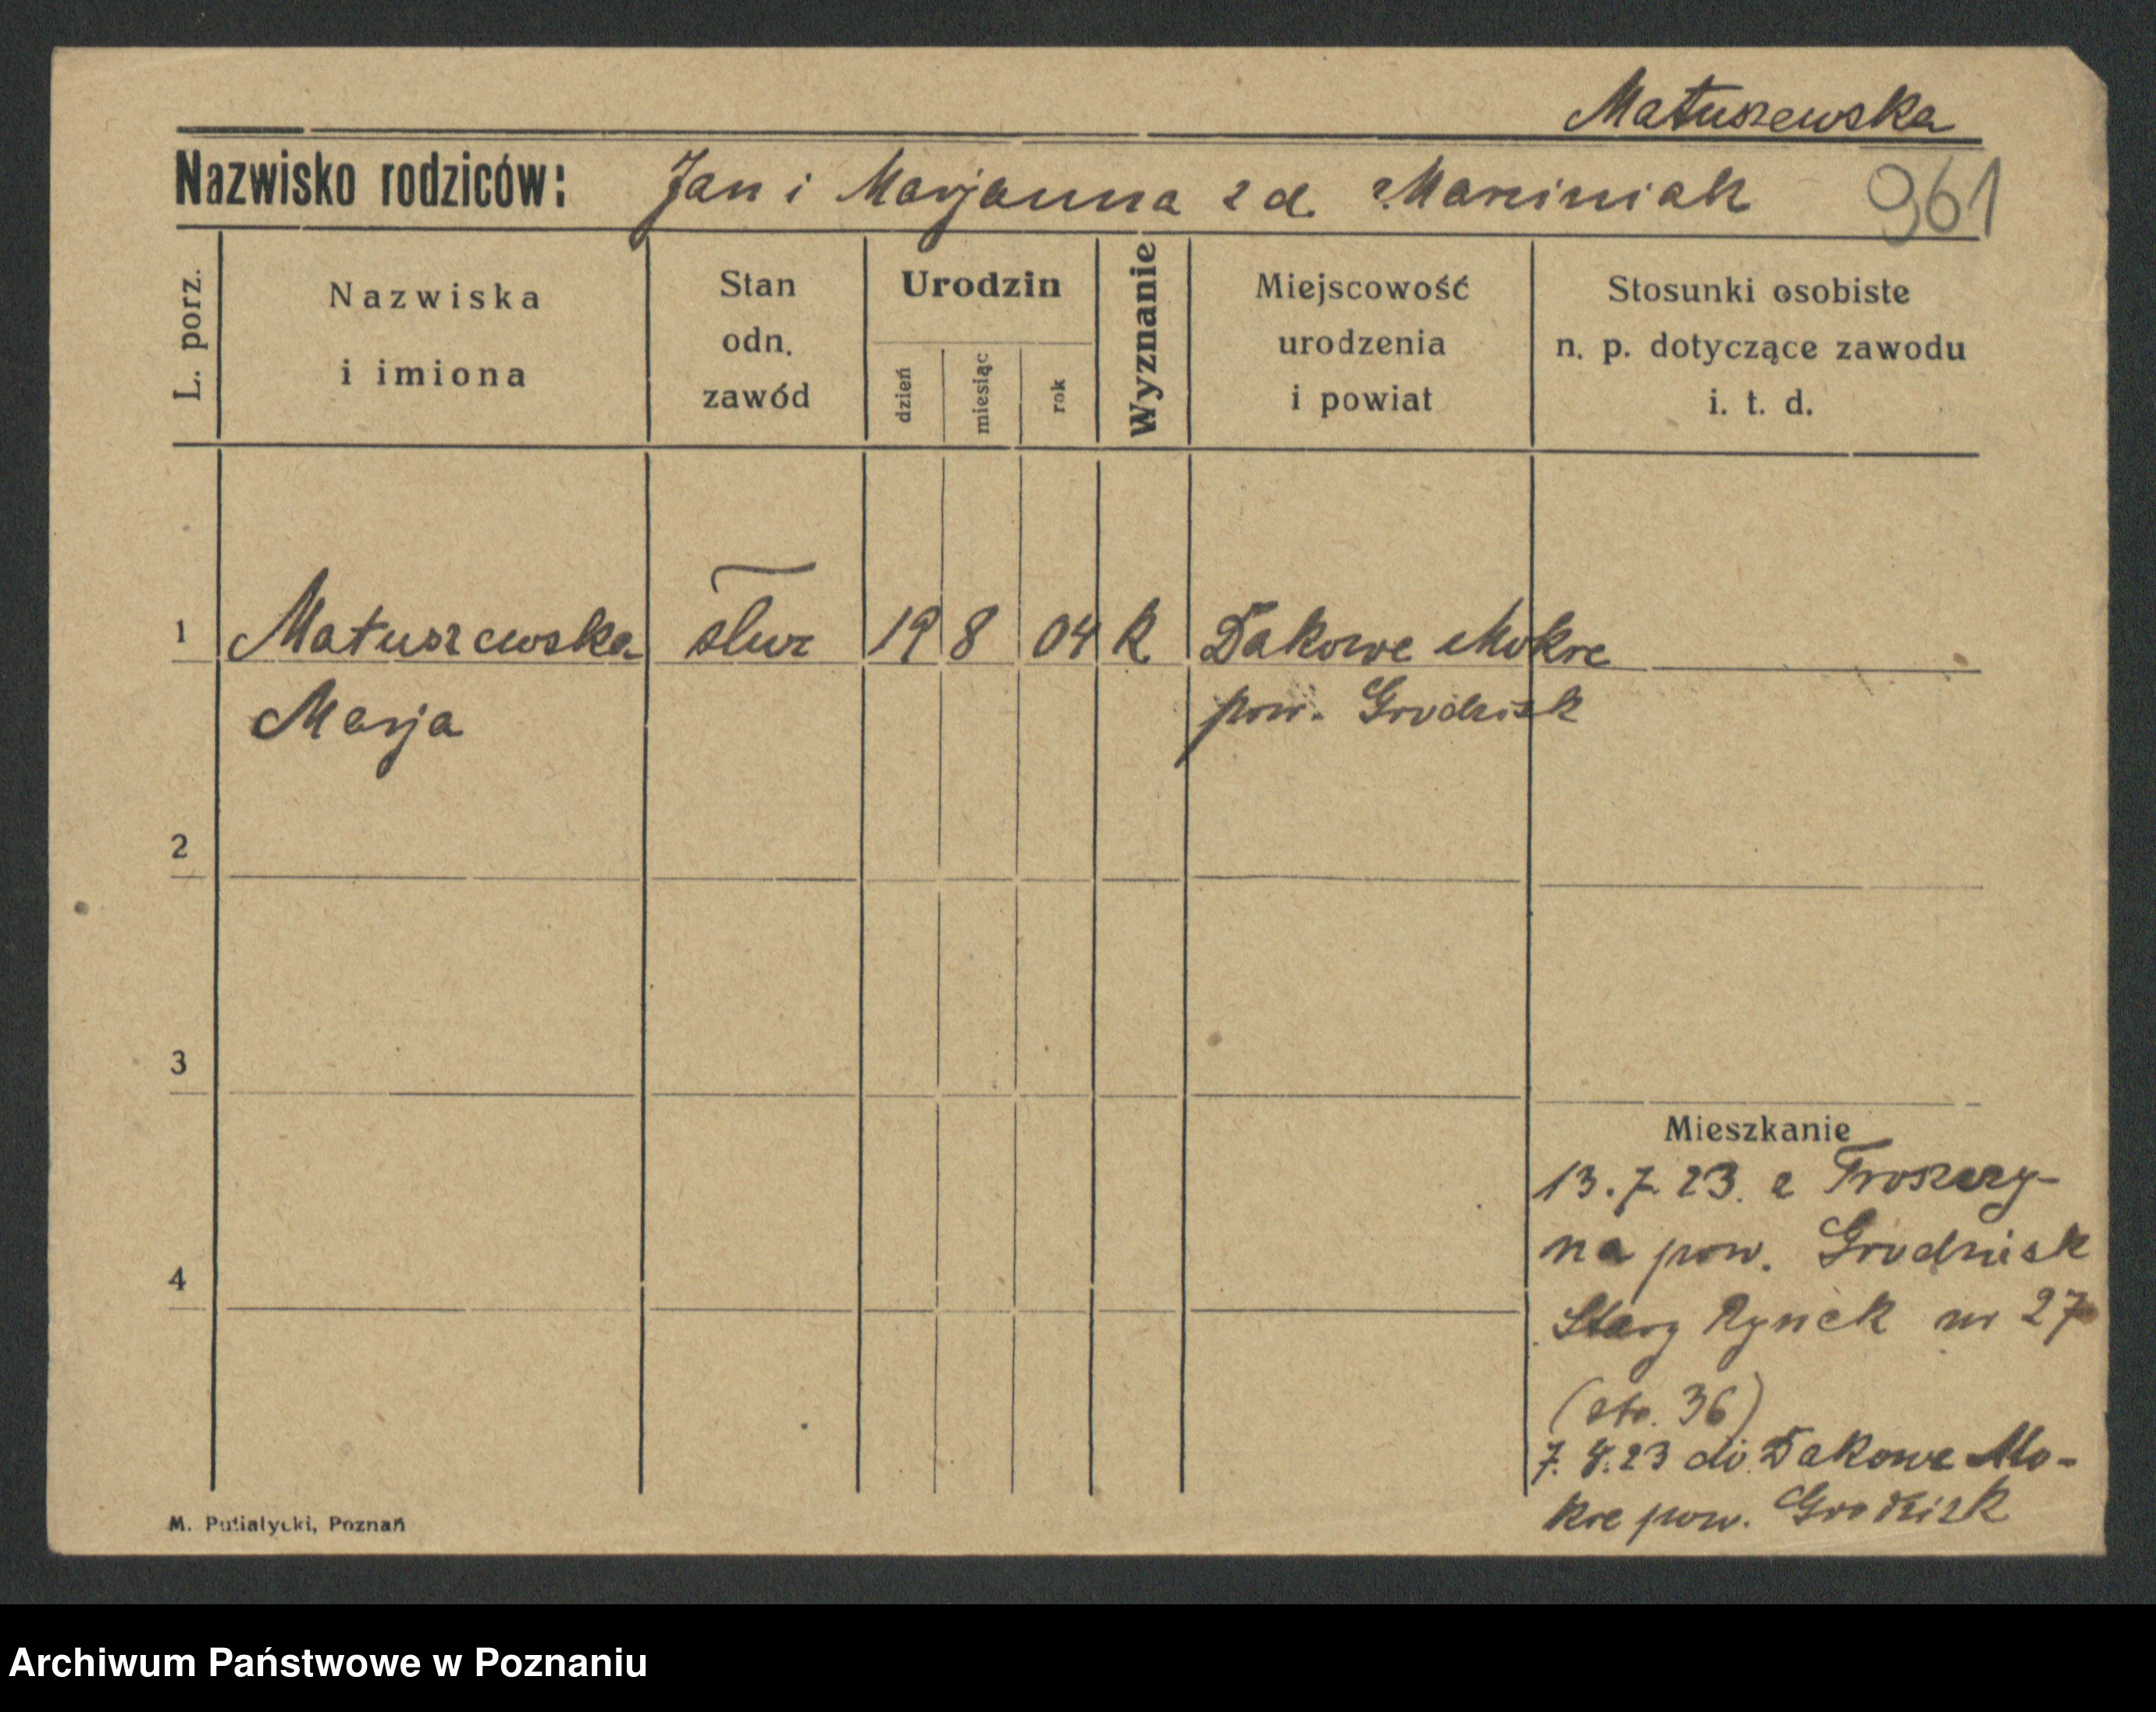 Matuszewska
Nazwisko rodziców: Jan i Marjanna z d. Marciniak 961
L. porz.
Nazwiska i imiona
Stan odn. zawód
Urodzin
dzień
miesiąc
rok
Wyznanie
Miejscowość urodzenia i powiat
Stosunki osobiste n. p. dotyczące zawodu i. t. d.
1 Matuszewska służ 19 8 04 k Dakowe Mokre
Marja pow. Grodzisk
2
3
Mieszkanie
13.7.23. z Troszczy-
na pow. Grodzisk
4
Stary Rynek nr 27
(str. 36)
7. 8.23 do Dakowe Mo-
kre pow. Grodzisk
M. Putiatycki, Poznań
Archiwum Państwowe w Poznaniu